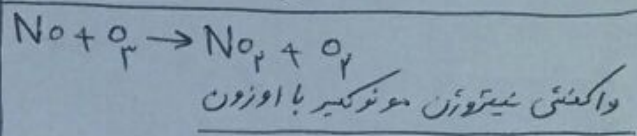 No + O₃ → No₂ + O₂
واکنش نیتروژن مونوکسید با اوزون